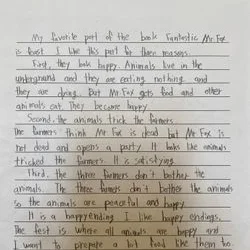 My favorite part of the book Fantastic Mr. Fox
is feast I like this part for three reasons.
First, they look happy. Animals live in the
underground and they are eating nothing and
they are dying. But Mr. Fox gets food and other
animals eat. They become happy.
Second, the animals trick the farmers.
The farmers think Mr Fox is dead but Mr Fox is
not dead and opens a party. It looks like animals
tricked the farmers. It is satisfying.
Third, the three farmers don't bother the
animals. The three farmers don't bother the animals
so the animals are peaceful and happy
It is a happy ending I like happy endings.
The fest is where all animals are happy and
I want to prepare a lot food like them too